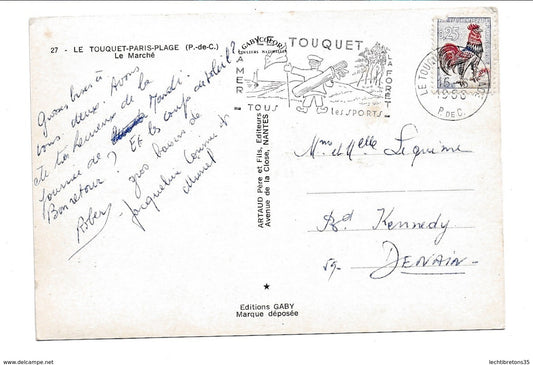 27 - LE TOUQUET-PARIS-PLAGE (P.-de-C.)
Le Marché
Gros bises à
vous deux. Avons
été très heureux de la
journée de Mardi.
Bon retour ? Et les coups de soleil ?
gros baisers de
Jacqueline
ARTAUD Père et Fils, Editeurs
Avenue de la Close, NANTES
GABYCOLOR
LE TOUQUET
LA MER
LA FORET
TOUS
les SPORTS
25
LE TOUQUET
P. DE C.
Mme et Melle Lequime
Bd Kennedy
59 - DENAIN
Editions GABY
Marque déposée
https://www.delcampe.net
lechtibretons35